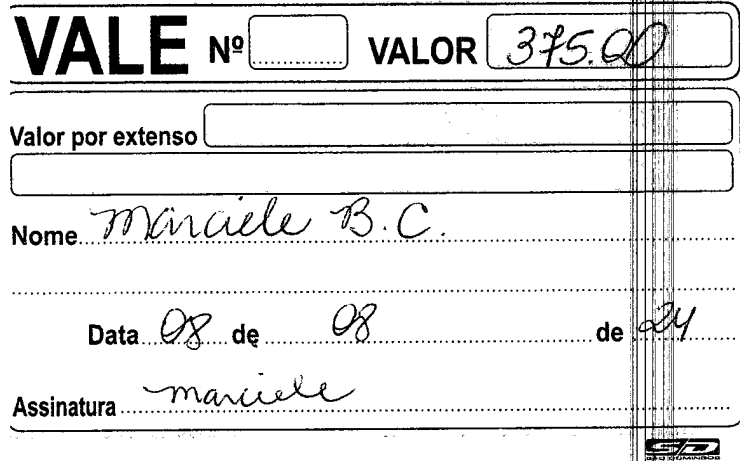 VALE Nº VALOR 375.00
Valor por extenso
Nome Marciele B.C.
Data 08 de 08 de 24
Assinatura Marciele
SD
SÃO DOMINGOS